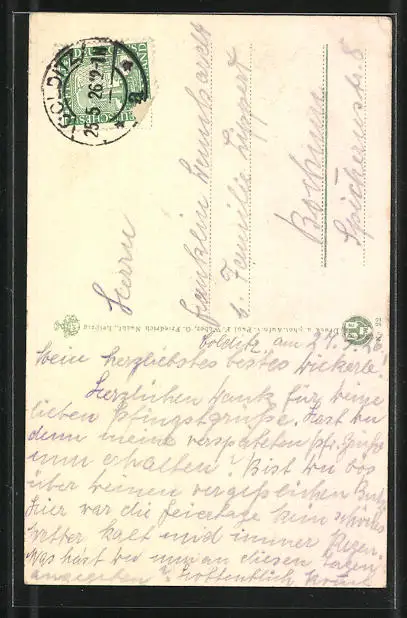 COLDITZ
25.5.26.9-1
a
DEUTSCHES
Herrn
Franklin Leonhardt
b. Familie Lippert
Bochum
Spichernstr. 8
Druck u. phot. Aufn. v. Paul F. Weber, G. Friedrich Nachf., Leipzig
Nr. 22
Colditz, am 24.5.26
Mein herzliebstes bestes
Herzlichen Dank für deine
lieben Pfingstgrüße. Hast du
denn meine verspäteten Pf. Grüße
nun erhalten? Bist du bös
über deinen vergeßlichen
Hier war die Feiertage kein schönes
Wetter kalt und immer Regen.
Was hast du nun an diesen Tagen
angegeben? Hoffentlich